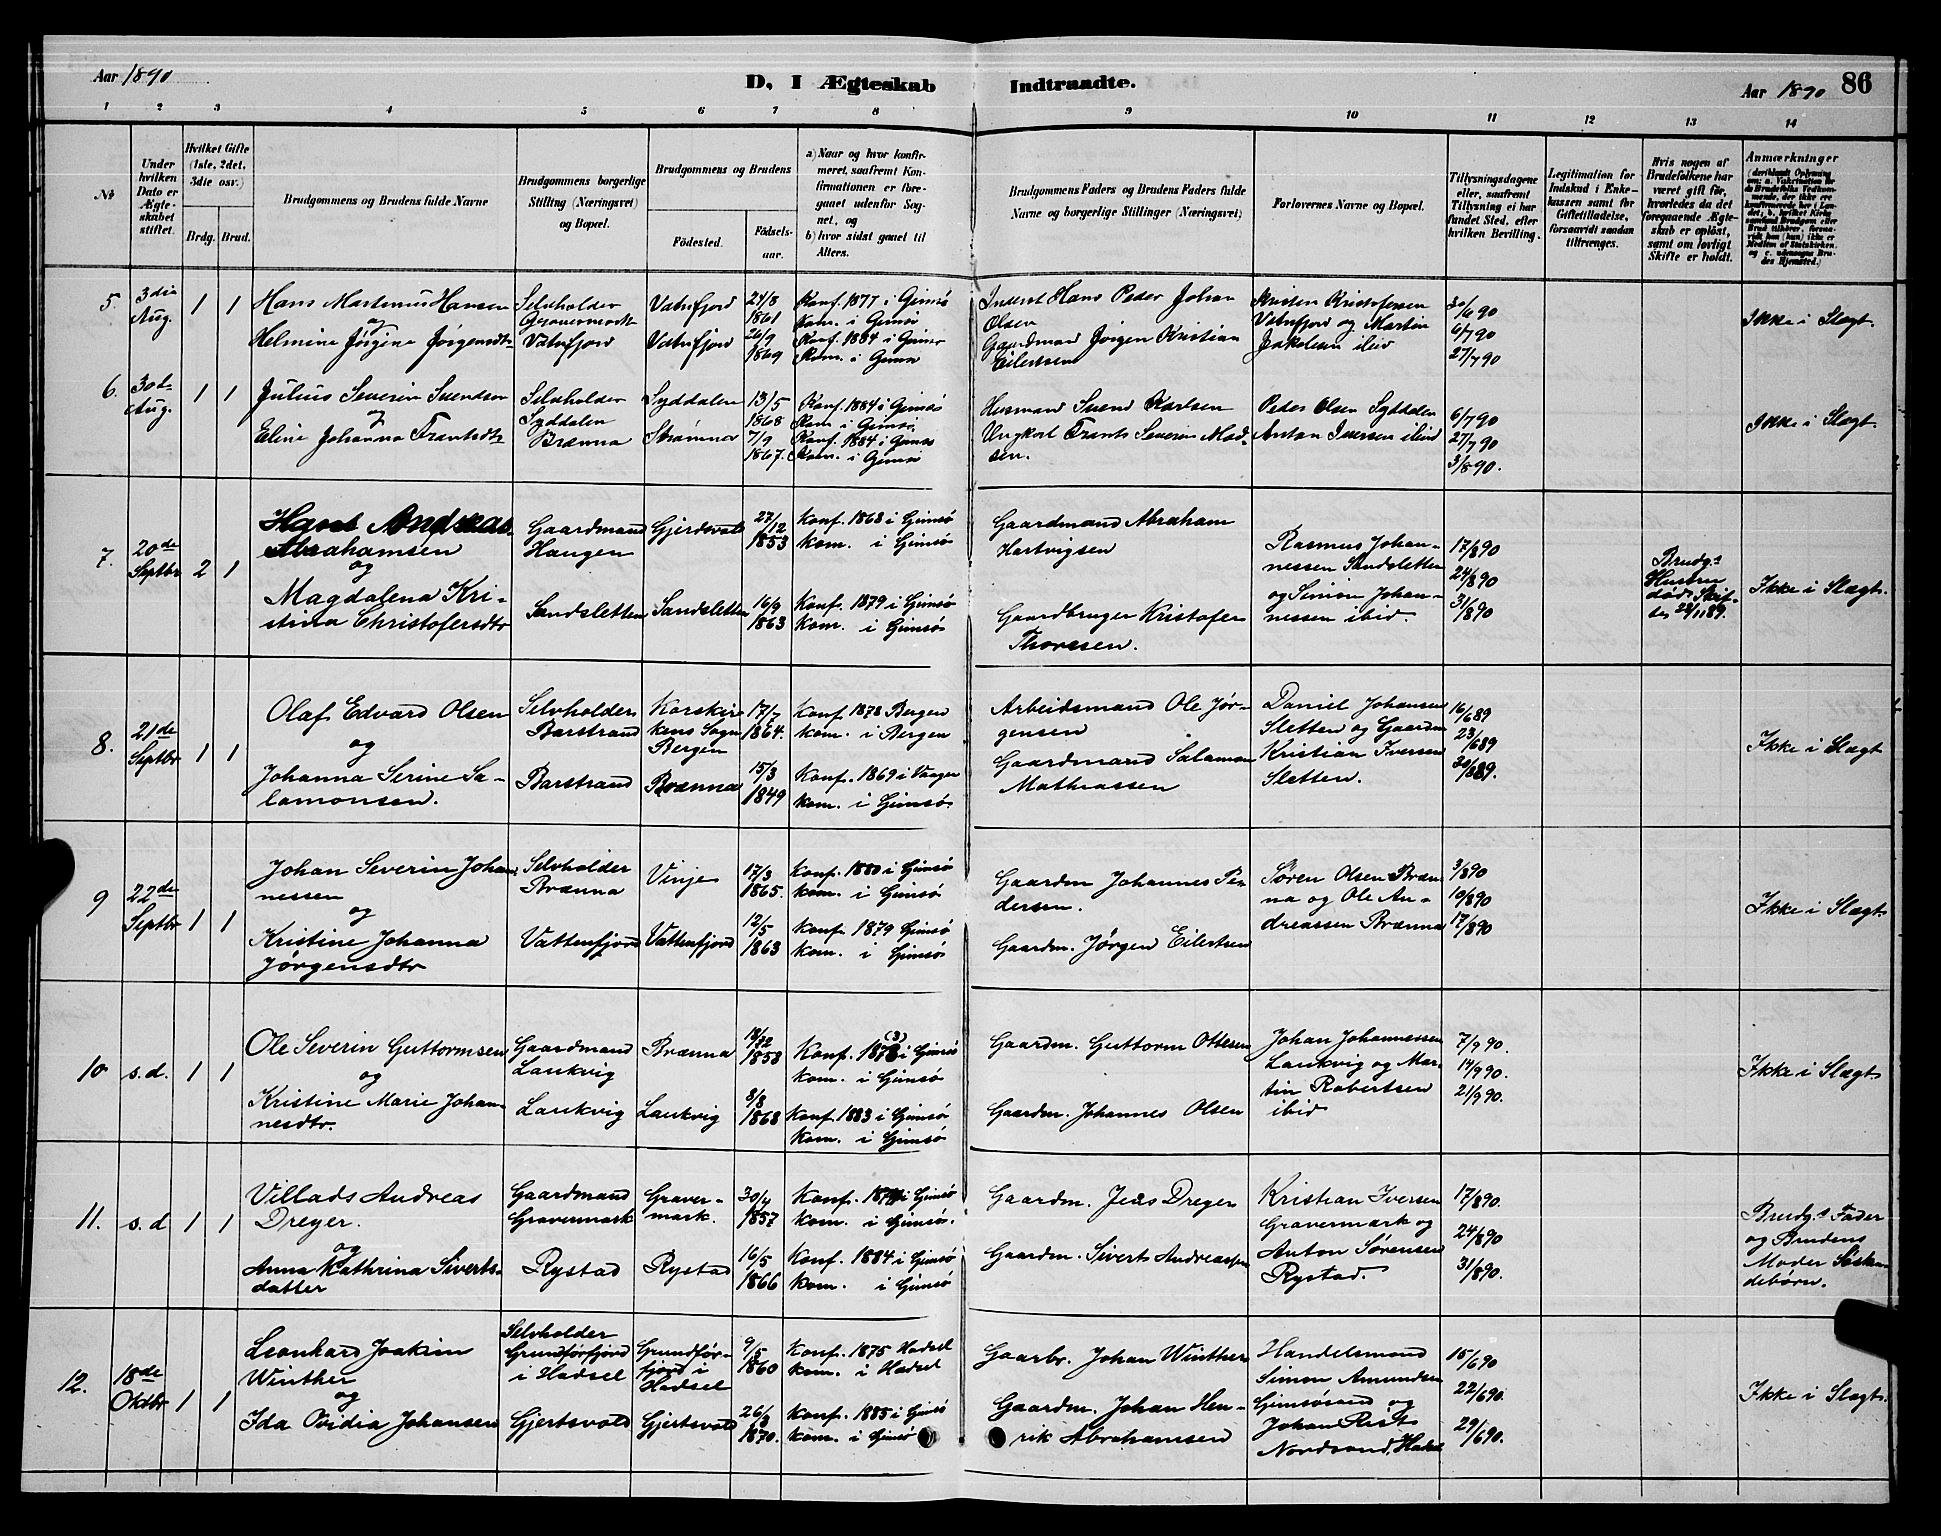 Aar 1890
D, I Ægteskab Indtraadte.
Aar 1890 86
1 2 3 4 5 6 7 8 9 10 11 12 13 14
№
Under hvilken Dato er Ægteskabet stiftet.
Hvilket Gifte (1ste, 2det, 3die osv.)
Brdg. Brud.
Brudgommens og Brudens fulde Navne
Brudgommens borgerlige Stilling (Næringsvei) og Bopæl.
Brudgommens og Brudens
Fødested.
Fødselsaar.
a) Naar og hvor konfirmeret, saafremt Konfirmationen er foregaaet udenfor Sognet, og
b) hvor sidst gaaet til Alters.
Brudgommens Faders og Brudens Faders fulde Navne og borgerlige Stillinger (Næringsvei)
Forlovernes Navne og Bopæl.
Tillysningsdagene eller, saafremt Tillysning ei har fundet Sted, efter hvilken Bevilling.
Legitimation for Indskud i Enkekassen samt for Giftetilladelse, forsaavidt saadan tiltrænges.
Hvis nogen af Brudefolkene har været gift før, hvorledes da det foregaaende Ægteskab er opløst, samt om lovligt Skifte er holdt.
Anmærkninger
5. 3die Aug. 1 1
Hans Martinus Hansen
og
Helmine Jørgine Jørgensdtr
Selvholder
Gravermark
Vatnfjord
Vatnfjord
Vatnfjord
24/8 1861
26/9 1869
Konf. 1877 i Gimsø
Kom. i Gimsø
Konf. 1884 i Gimsø
Kom. i Gimsø
Inderst Hans Peder Johan
Olsen
Gaardmand Jørgen Kristian
Eilertsen
Kristen Kristofersen
Vatnfjord og Martin
Jakobsen ibid
30/6 90
6/7 90
27/7 90
Ikke i Slægt.
6. 30te Aug. 1 1
Julius Severin Svendsen
og
Eline Johanna Frantsdtr
Selvholder
Syddalen
Brænna
Syddalen
Strømnes
13/5 1868
7/9 1867.
Konf. 1884 i Gimsø
Kom. i Gimsø
Konf. 1884 i Gimsø
Kom. i Gimsø
Husmand Svend Karlsen
Ungkarl Frants Severin Madsen.
Peder Olsen Syddalen
Anton Iversen ibid
6/7 90
27/7 90
3/8 90.
Ikke i Slægt.
7. 20de Septbr 2 1
Hans Andreas
Abrahamsen
og
Magdalena Kri-
stina Christofersdtr
Gaardmand
Haugen
Sandsletten
Gjerdsvold
Sandsletten
27/12 1853
16/9 1863
Konf. 1868 i Gimsø
Kom. i Gimsø
Konf. 1879 i Gimsø
Kom. i Gimsø
Gaardmand Abraham
Hartvigsen
Gaardbruger Kristofer
Thoresen.
Rasmus Johan-
nessen Sandsletten
og Simon Johan-
nessen ibid.
17/8 90
24/8 90
31/8 90
Brudg.s
Hustru
død. Skif-
tes 23/11 89.
Ikke i Slægt.
8. 21de Septbr 1 1
Olaf Edvard Olsen
og
Johanna Serine Sa-
lamonsen.
Selvholder
Barstrand
Barstrand
Korskir-
kens Sogn
Bergen
Brænna
17/7 1864.
15/3 1849
Konf. 1878 Bergen
Kom. i Bergen
Konf. 1869 i Vaagen
Kom. i Gimsø
Arbeidsmand Ole Jør-
gensen
Gaardmand Salamon
Mathiassen
Daniel Johansen
Sletten og Gaardm
Kristian Iversen
Sletten.
16/6 89
23/6 89
30/6 89.
Ikke i Slægt
9 22de Septbr 1 1
Johan Severin Johan-
nessen
og
Kristine Johanna
Jørgensdtr
Selvholder
Brænna
Vattenfjord
Vinje
Vattenfjord
17/3 1865.
12/5 1863
Konf. 1880 i Gimsø
Kom. i Gimsø
Konf. 1879 Gimsø
Kom. i Gimsø
Gaardm Johannes Pe-
dersen.
Gaardm. Jørgen Eilertsen
Søren Olsen Bræn-
na og Ole An-
dreassen Brænna
3/8 90
10/8 90
17/8 90
Ikke i Slægt
10 s.d. 1 1
Ole Severin Guttormsen
og
Kristine Marie Johan-
nesdtr.
Gaardmand
Laukvig
Laukvig
Brænna
Laukvig
18/12 1858
8/8 1868
Konf. 1873 (3) i Gimsø
Kom. i Gimsø
Konf. 1883 i Gimsø
Kom. i Gimsø
Gaardm. Guttorm Ottesen
Gaardm. Johannes Olsen
Johan Johannessen
Laukvig og Mar-
tin Robertsen
ibid
7/9 90.
14/9 90.
21/9 90.
Ikke i Slægt
11. s.d 1 1
Villads Andreas
Dreyer.
og
Anna Kathrina Siverts-
datter
Gaardmand
Gravermark
Rystad
Graver-
mark.
Rystad
30/4 1857
16/5 1866
Konf. 1874 i Gimsø
Kom. i Gimsø.
Konf. 1884 i Gimsø
Kom. i Gimsø
Gaardm. Jens Dreyer
Gaardm. Siverts Andreassen
Kristian Iversen
Gravermark og
Anton Sørensen
Rystad.
17/8 90.
24/8 90
31/8 90.
Brudg.s Fader
og Brudens
Moder Søsken-
debørn.
12. 18de Oktbr 1 1
Leonhard Joakim
Winther
og
Ida Ovidia Johansen
Selvholder
Grundførfjord
i Hadsel
Gjertsvold
Grundfør-
fjord i
Hadsel
Gjertsvold
9/5 1860
26/8 1870.
Konf. 1875 Hadsel
Kom. i Hadsel
Konf. 1885 i Gimsø
Kom. i Gimsø
Gaarbr. Johan Winther
Gaardm. Johan Hen-
rik Abrahamsen
Handelsmand
Simon Amundsen
Gimsøsand og
Johan Rist
Nordsand, Hadsel
15/6 90
22/6 90.
29/6 90.
Ikke i Slægt.